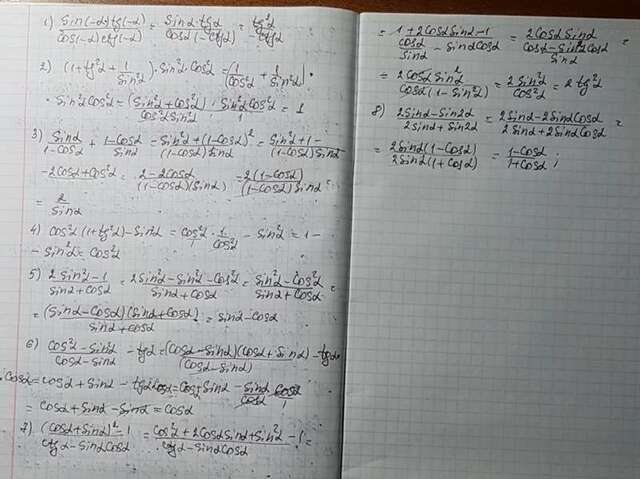 1) sin(-α)tg(-α) / cos(-α)ctg(-α) = sinα·tgα / cosα(-ctgα) = tg²α / -ctgα
2) (1+tg²α + 1/sin²α)·sin²α·cos²α = (1/cos²α + 1/sin²α)·
·sin²αcos²α = (sin²α+cos²α) / cos²αsin²α · sin²αcos²α / 1 = 1
3) sinα / 1-cosα + 1-cosα / sinα = sin²α+(1-cosα)² / (1-cosα)sinα = sin²α+1- / (1-cosα)sinα
-2cosα+cos²α = 2-2cosα / (1-cosα)(sinα) = 2(1-cosα) / (1-cosα)sinα =
= 2 / sinα
4) cos²α(1+tg²α)-sin²α = cos²α / 1 · 1 / cos²α - sin²α = 1-
- sin²α = cos²α
5) 2sin²α-1 / sinα+cosα = 2sin²α-sin²α-cos²α / sinα+cosα = sin²α-cos²α / sinα+cosα =
= (sinα-cosα)(sinα+cosα) / sinα+cosα = sinα-cosα
6) cos²α-sin²α / cosα-sinα - tgα = (cosα-sinα)(cosα+sinα) / (cosα-sinα) - tgα·
·cosα = cosα+sinα-tgαcosα = cosα+sinα - sinα / cosα · cosα / 1
= cosα+sinα-sinα = cosα
7) (cosα+sinα)²-1 / ctgα-sinαcosα = cos²α+2cosαsinα+sin²α-1 / ctgα-sinαcosα =
= 1+2cosαsinα-1 / cosα/sinα - sinαcosα = 2cosαsinα / cosα-sin²αcosα/sinα =
= 2cosαsin²α / cosα(1-sin²α) = 2sin²α / cos²α = 2tg²α
8) 2sinα-sin2α / 2sinα+sin2α = 2sinα-2sinαcosα / 2sinα+2sinαcosα =
= 2sinα(1-cosα) / 2sinα(1+cosα) = 1-cosα / 1+cosα ;